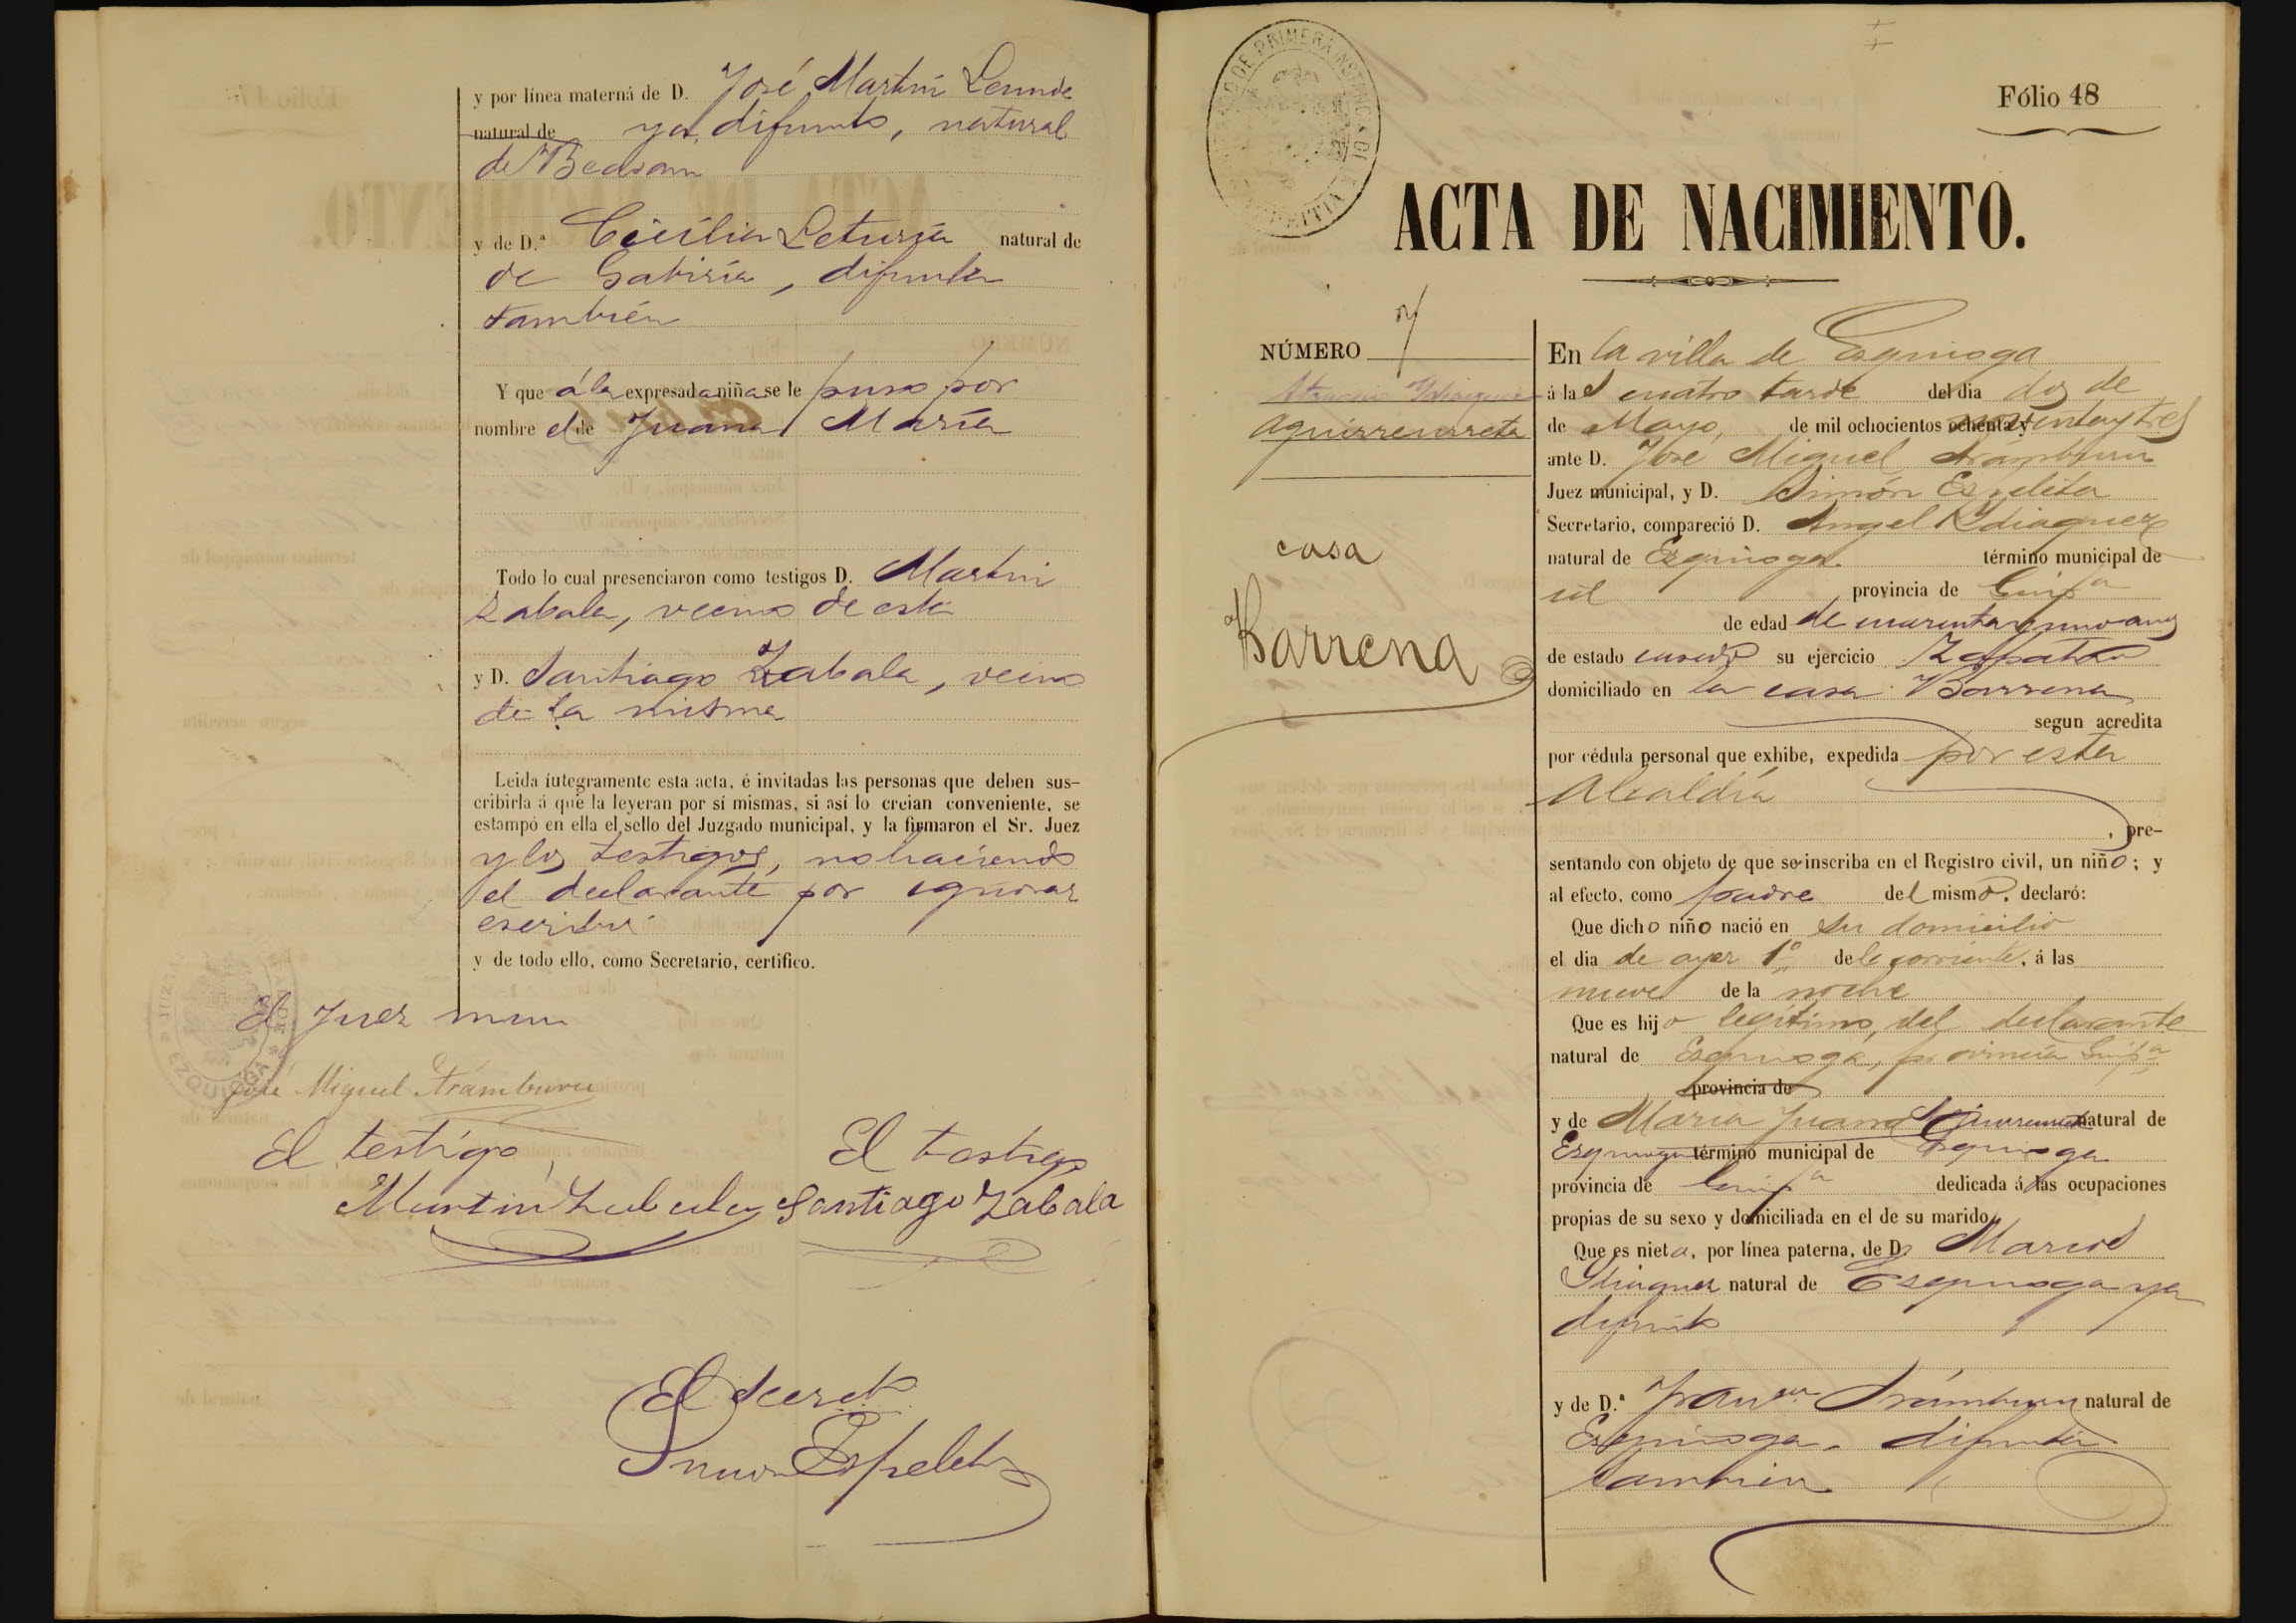 y por línea materna de D. José Martín
natural de ya difunto, natural
de Beasain
y de D.ª Cicilia Leturia natural de
de Gabiria, difunta
también
Y que á la expresada niña se le puso por
nombre el de Juana María
Todo lo cual presenciaron como testigos D. Martin
Zabala, vecino de esta
y D. Santiago Zabala, vecino
de la misma
Leida íntegramente esta acta, é invitadas las personas que deben sus-
cribirla á que la leyeran por sí mismas, si así lo creian conveniente, se
estampó en ella el sello del Juzgado municipal, y la firmaron el Sr. Juez
y los testigos, no haciendo
el declarante por ignorar
escribir
y de todo ello, como Secretario, certifico.
El Juez mun
José Miguel Arámburu
El testigo El testigo
Martin Zabala Santiago Zabala
El Secret.º
Simon Espeleta
JUZGADO DE PRIMERA INSTANCIA DE AZPEITIA
Fólio 48
ACTA DE NACIMIENTO.
NÚMERO 7
Idiaquez
Aguirreurreta
casa
Barrena
En la villa de Ezquioga
á las cuatro tarde del dia dos de
de Mayo, de mil ochocientos ochenta y noventa y tres
ante D. José Miguel Arámburu
Juez municipal, y D. Simón Espeleta
Secretario, compareció D. Angel Idiaquez
natural de Ezquioga término municipal de
id provincia de Guip.a
de edad de cuarenta y uno años
de estado casado su ejercicio Zapatero
domiciliado en la casa Barrena
segun acredita
por cédula personal que exhibe, expedida por esta
Alcaldía
, pre-
sentando con objeto de que se inscriba en el Registro civil, un niño; y
al efecto, como padre del mismo, declaró:
Que dicho niño nació en su domicilio
el dia de ayer 1.º del corriente, á las
nueve de la noche
Que es hijo legítimo, del declarante
natural de Ezquioga, provincia Guip.a
provincia de
y de María Juana natural de
Ezquioga término municipal de Ezquioga
provincia de Guip.a dedicada á las ocupaciones
propias de su sexo y domiciliada en el de su marido
Que es nieta, por línea paterna, de D. Marcos
Idiaquez natural de Ezquioga ya
difunto
y de D.ª Fran.ca Arámburu natural de
Ezquioga, difunta
tambien